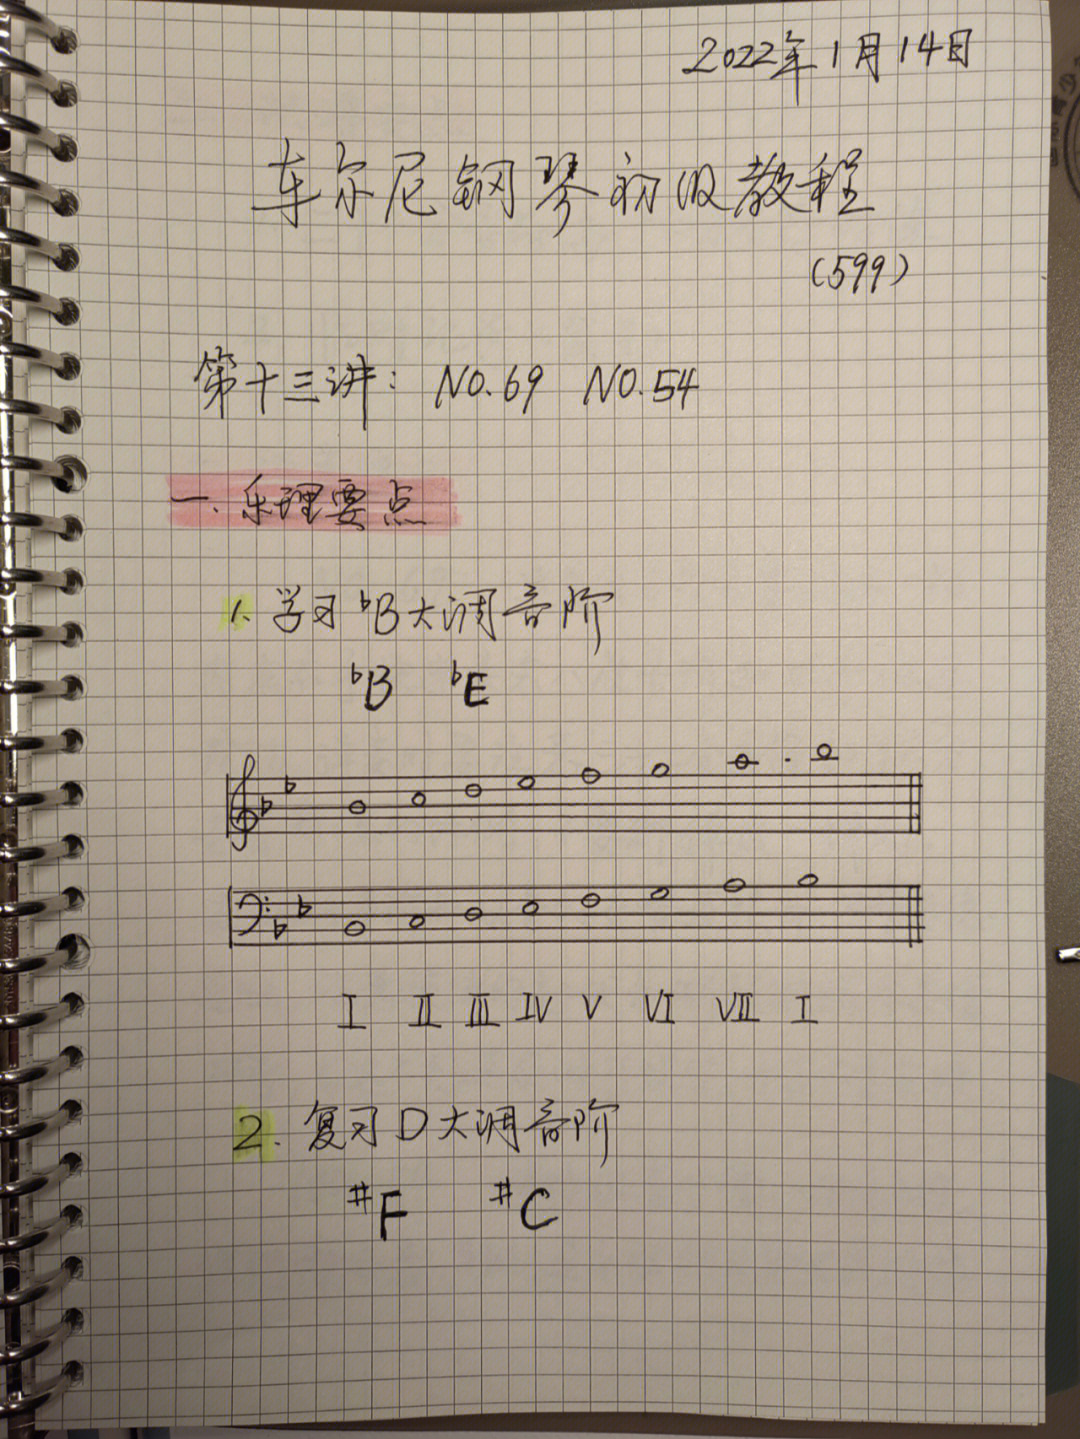 2022年1月14日
车尔尼钢琴初级教程
(599)
第十三讲: NO.69 NO.54
一.乐理要点
1. 学习♭B大调音阶
♭B ♭E
I II III IV V VI VII I
2. 复习D大调音阶
#F #C